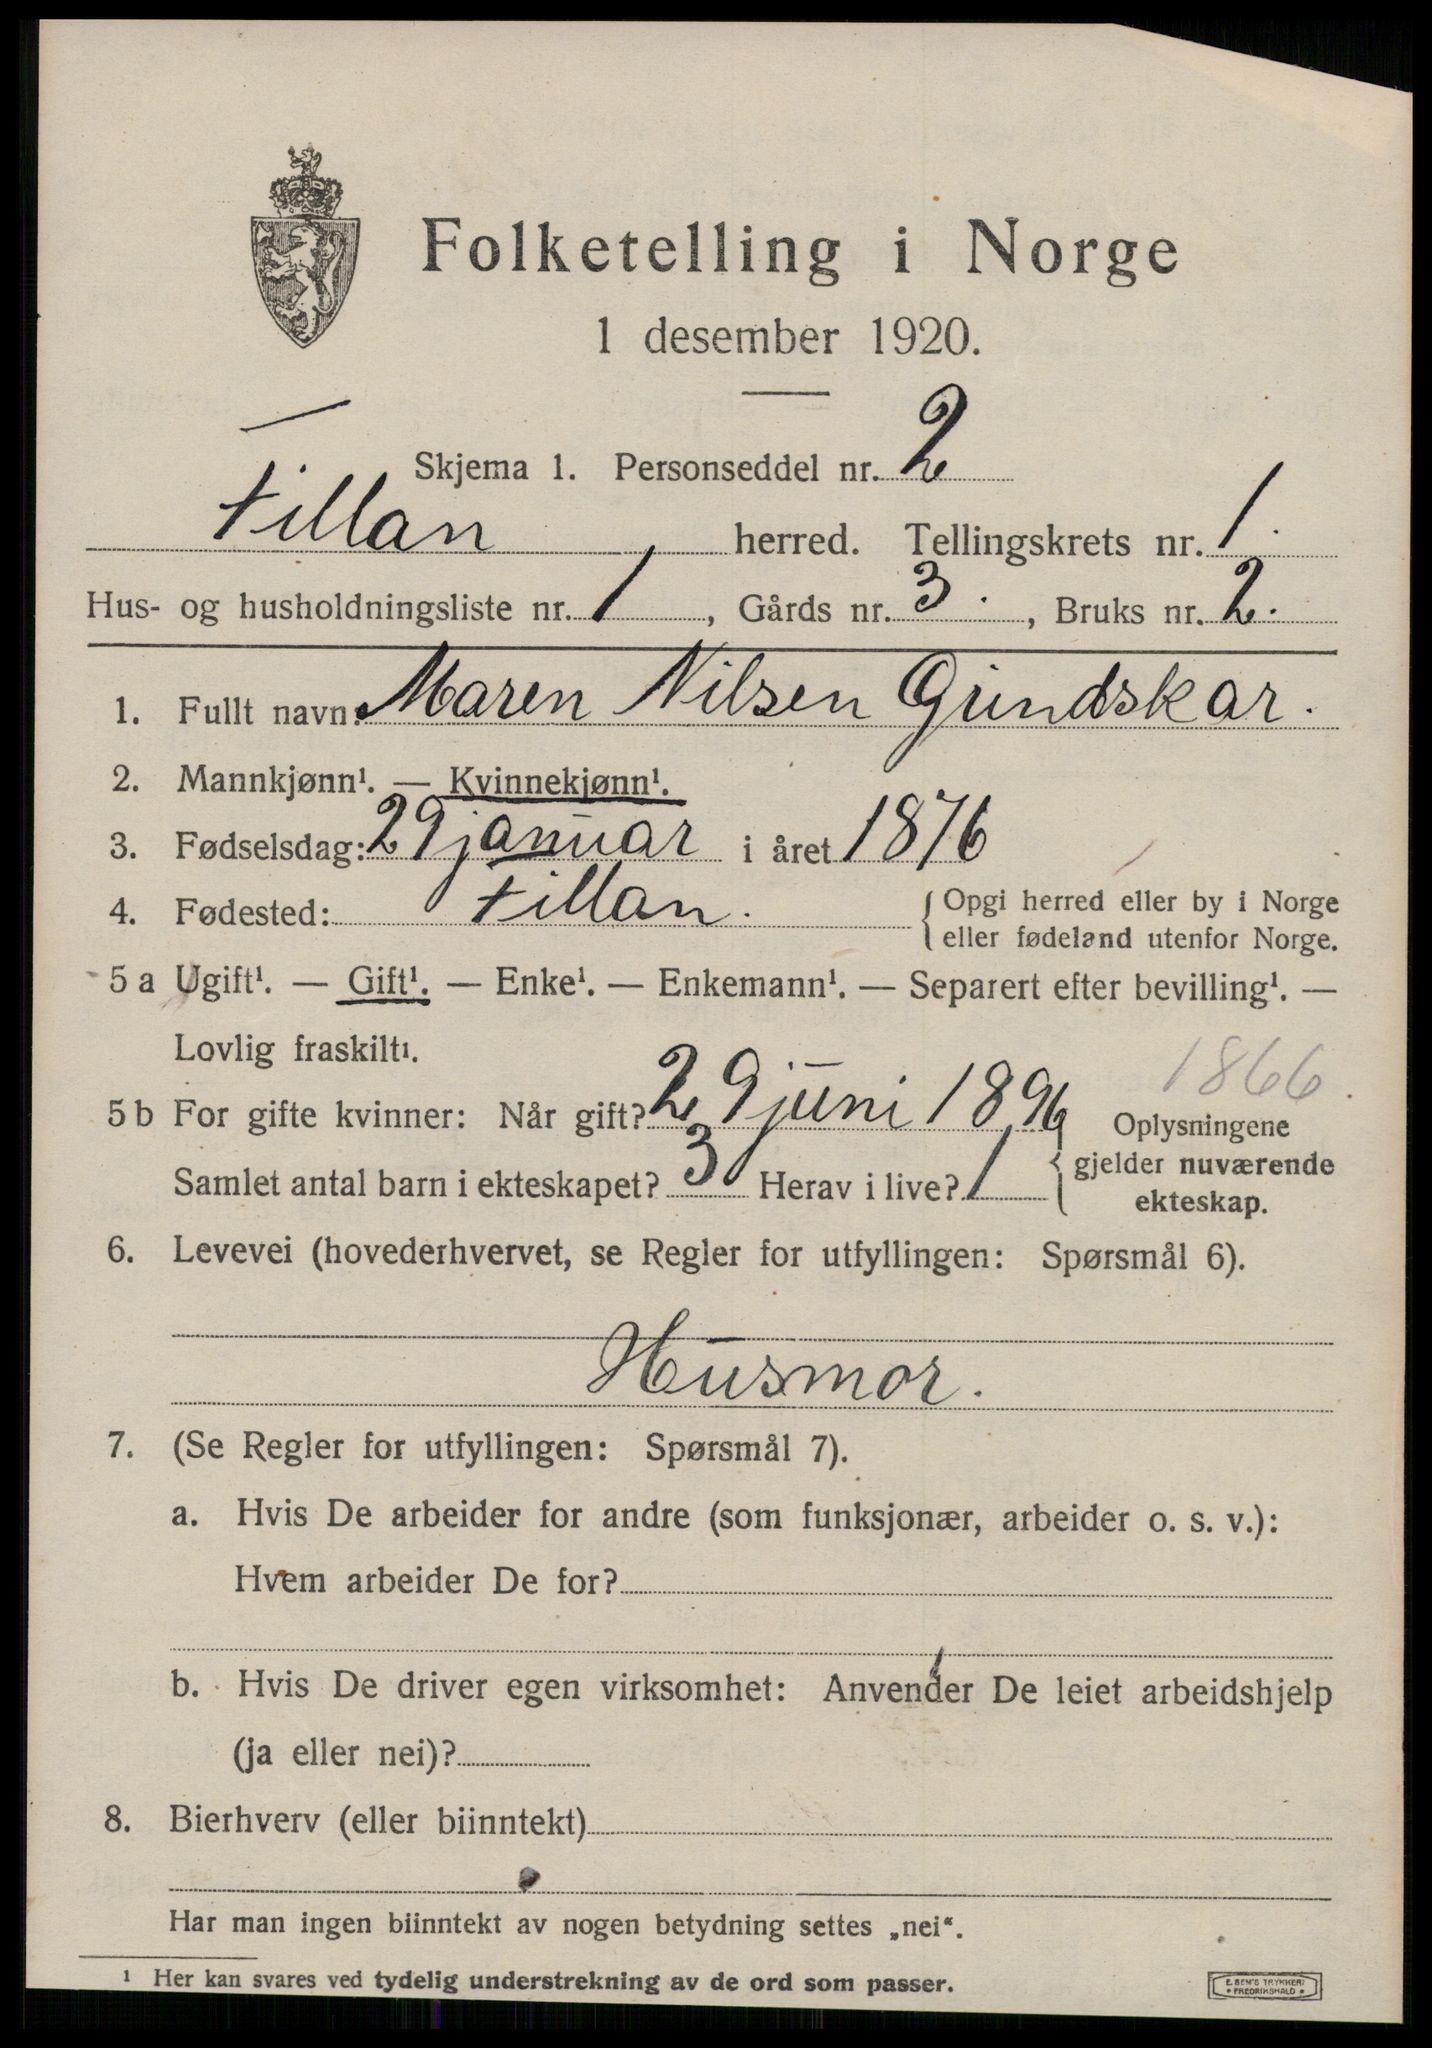 Folketelling i Norge
1 desember 1920.
Skjema 1. Personseddel nr. 2
Fillan herred. Tellingskrets nr. 1.
Hus- og husholdningsliste nr. 1, Gårds nr. 3., Bruks nr. 2.
1. Fullt navn: Maren Nilsen Gundskar.
2. Mannkjønn¹. — Kvinnekjønn¹.
3. Fødselsdag: 29 januar i året 1876
4. Fødested: Fillan. { Opgi herred eller by i Norge
eller fødeland utenfor Norge.
5 a Ugift¹. — Gift¹. — Enke¹. — Enkemann¹. — Separert efter bevilling¹. —
Lovlig fraskilt¹.
1866.
5 b For gifte kvinner: Når gift? 29 juni 1896
Samlet antal barn i ekteskapet? 3 Herav i live? 1
{ Oplysningene
gjelder nuværende
ekteskap.
6. Levevei (hovederhvervet, se Regler for utfyllingen: Spørsmål 6).
Husmor.
7. (Se Regler for utfyllingen: Spørsmål 7).
a. Hvis De arbeider for andre (som funksjonær, arbeider o. s. v.):
Hvem arbeider De for?
b. Hvis De driver egen virksomhet: Anvender De leiet arbeidshjelp
(ja eller nei)?
8. Bierhverv (eller biinntekt)
Har man ingen biinntekt av nogen betydning settes „nei“.
¹ Her kan svares ved tydelig understrekning av de ord som passer.
E. SEM'S TRYKKERI
• FREDRIKSHALD •